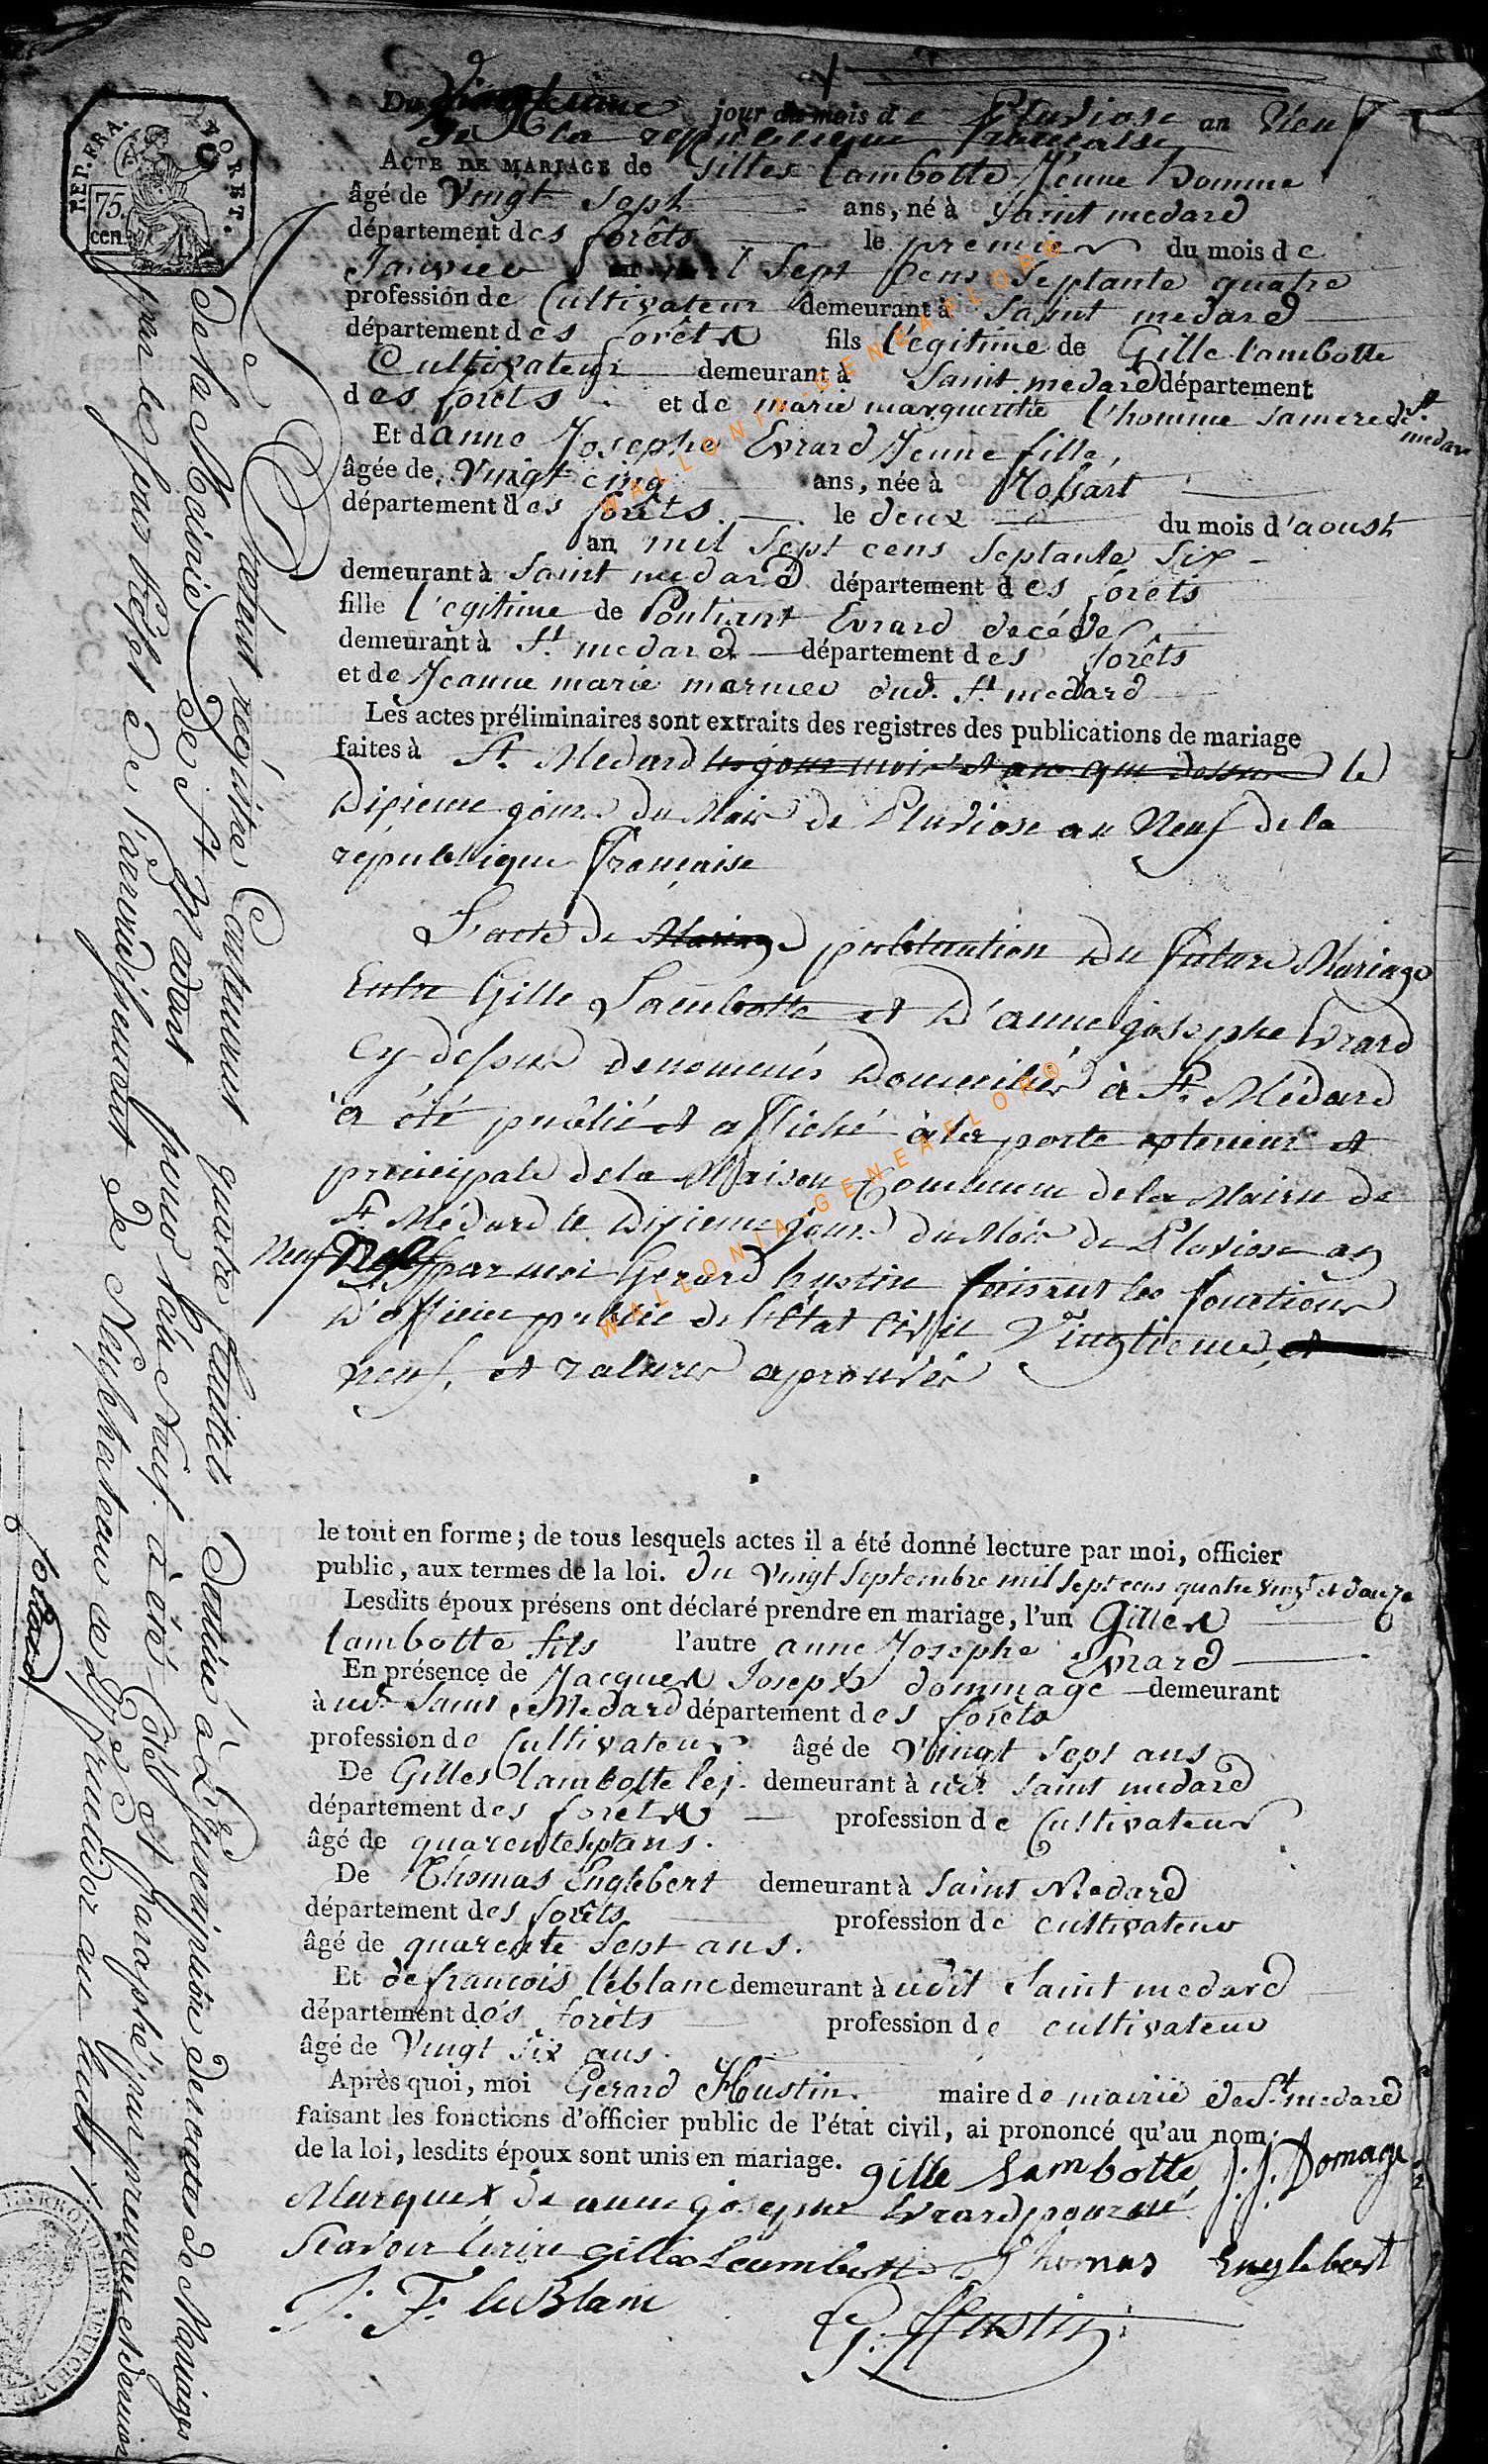 REP. FRA.
TORRET.
75.
cen.
Du Vingtieme jour du mois de Pluviose an Neuf
De la republique française
ACTE DE MARIAGE de Gilles Lambotte Jeune homme
âgé de Vingt Sept ans, né à Saint medard
département des forêts le premier du mois de
Janvier an mil Sept Cens Septante quatre
profession de Cultivateur demeurant à Saint medard
département des forêts fils l'égitime de Gille lambotte
Cultivateur demeurant à Saint medard département
des forêts et de marie marguerithe l'homme sa mere de St.
medard
Et d'anne Josephe Evrard Jeune fille,
âgée de Vingt cinq ans, née à Rossart
département des forêts le deux du mois d'aoust
an mil Sept cens Septante Six
demeurant à Saint medard département des forêts
fille l'egitime de Pontiant Evrard decédé
demeurant à St. medard département des forêts
et de Jeanne marie marnier dud. St medard
Les actes préliminaires sont extraits des registres des publications de mariage
faites à St. Médard les jour mois et an que dessus le
Dixieme jour du Mois de Pluviose an Neuf de la
république française
L'acte de Mariage publication du futur Mariage
Entre Gille Lambotte et D'anne josephe Evrard
Cy-dessus denommés Domiciliés à St. Médard
a été publié et affiché à la porte exterieur et
principale de la Maison Commune de la Mairie de
St. Médard le Dixieme jour du Mois de Pluviose an
Neuf par moi Gerard hustin faisant les fonctions
D'officier public de l'état Civil Vingtieme, et
neuf, et ratures aprouvés
le tout en forme; de tous lesquels actes il a été donné lecture par moi, officier
public, aux termes de la loi. du Vingt Septembre mil Sept cens quatre Vingt et douze
Lesdits époux présens ont déclaré prendre en mariage, l'un Gilles
lambotte fils l'autre anne Josephe Evrard
En présence de Jacques Joseph dommage demeurant
à ud. Saint Medard département des forêts
profession de Cultivateur âgé de Vingt Sept ans
De Gilles lambotte lej. demeurant à ud. Saint medard
département des forêts profession de Cultivateur
âgé de quarente sept ans.
De Thomas Englebert demeurant à Saint Medard
département des forêts profession de cultivateur
âgé de quarente Sept ans.
Et de francois leblanc demeurant à udit Saint medard
département des forêts profession de cultivateur
âgé de Vingt Six ans.
Après quoi, moi Gerard Hustin. maire de mairie de St. medard
faisant les fonctions d'officier public de l'état civil, ai prononcé qu'au nom
de la loi, lesdits époux sont unis en mariage. Gille Lambotte J. J. Domage
Marque X de anne josephe Evrard pour ne
Scavoir Ecrire gille Lambotte Thomas Englebert
J. F. leBlanc
G. Hustin
Ce présent régistre Contenant quatre feuillets Destiné à L'Inscription des actes de Mariages
de la Mairie de St Medart pour l'an neuf à été Coté et Paraphé par premier et dernier
par le Sous Préfet de l'arrondissement de Neufchateau
WALLONIA-GENEAFLOR®
WALLONIA-GENEAFLOR®